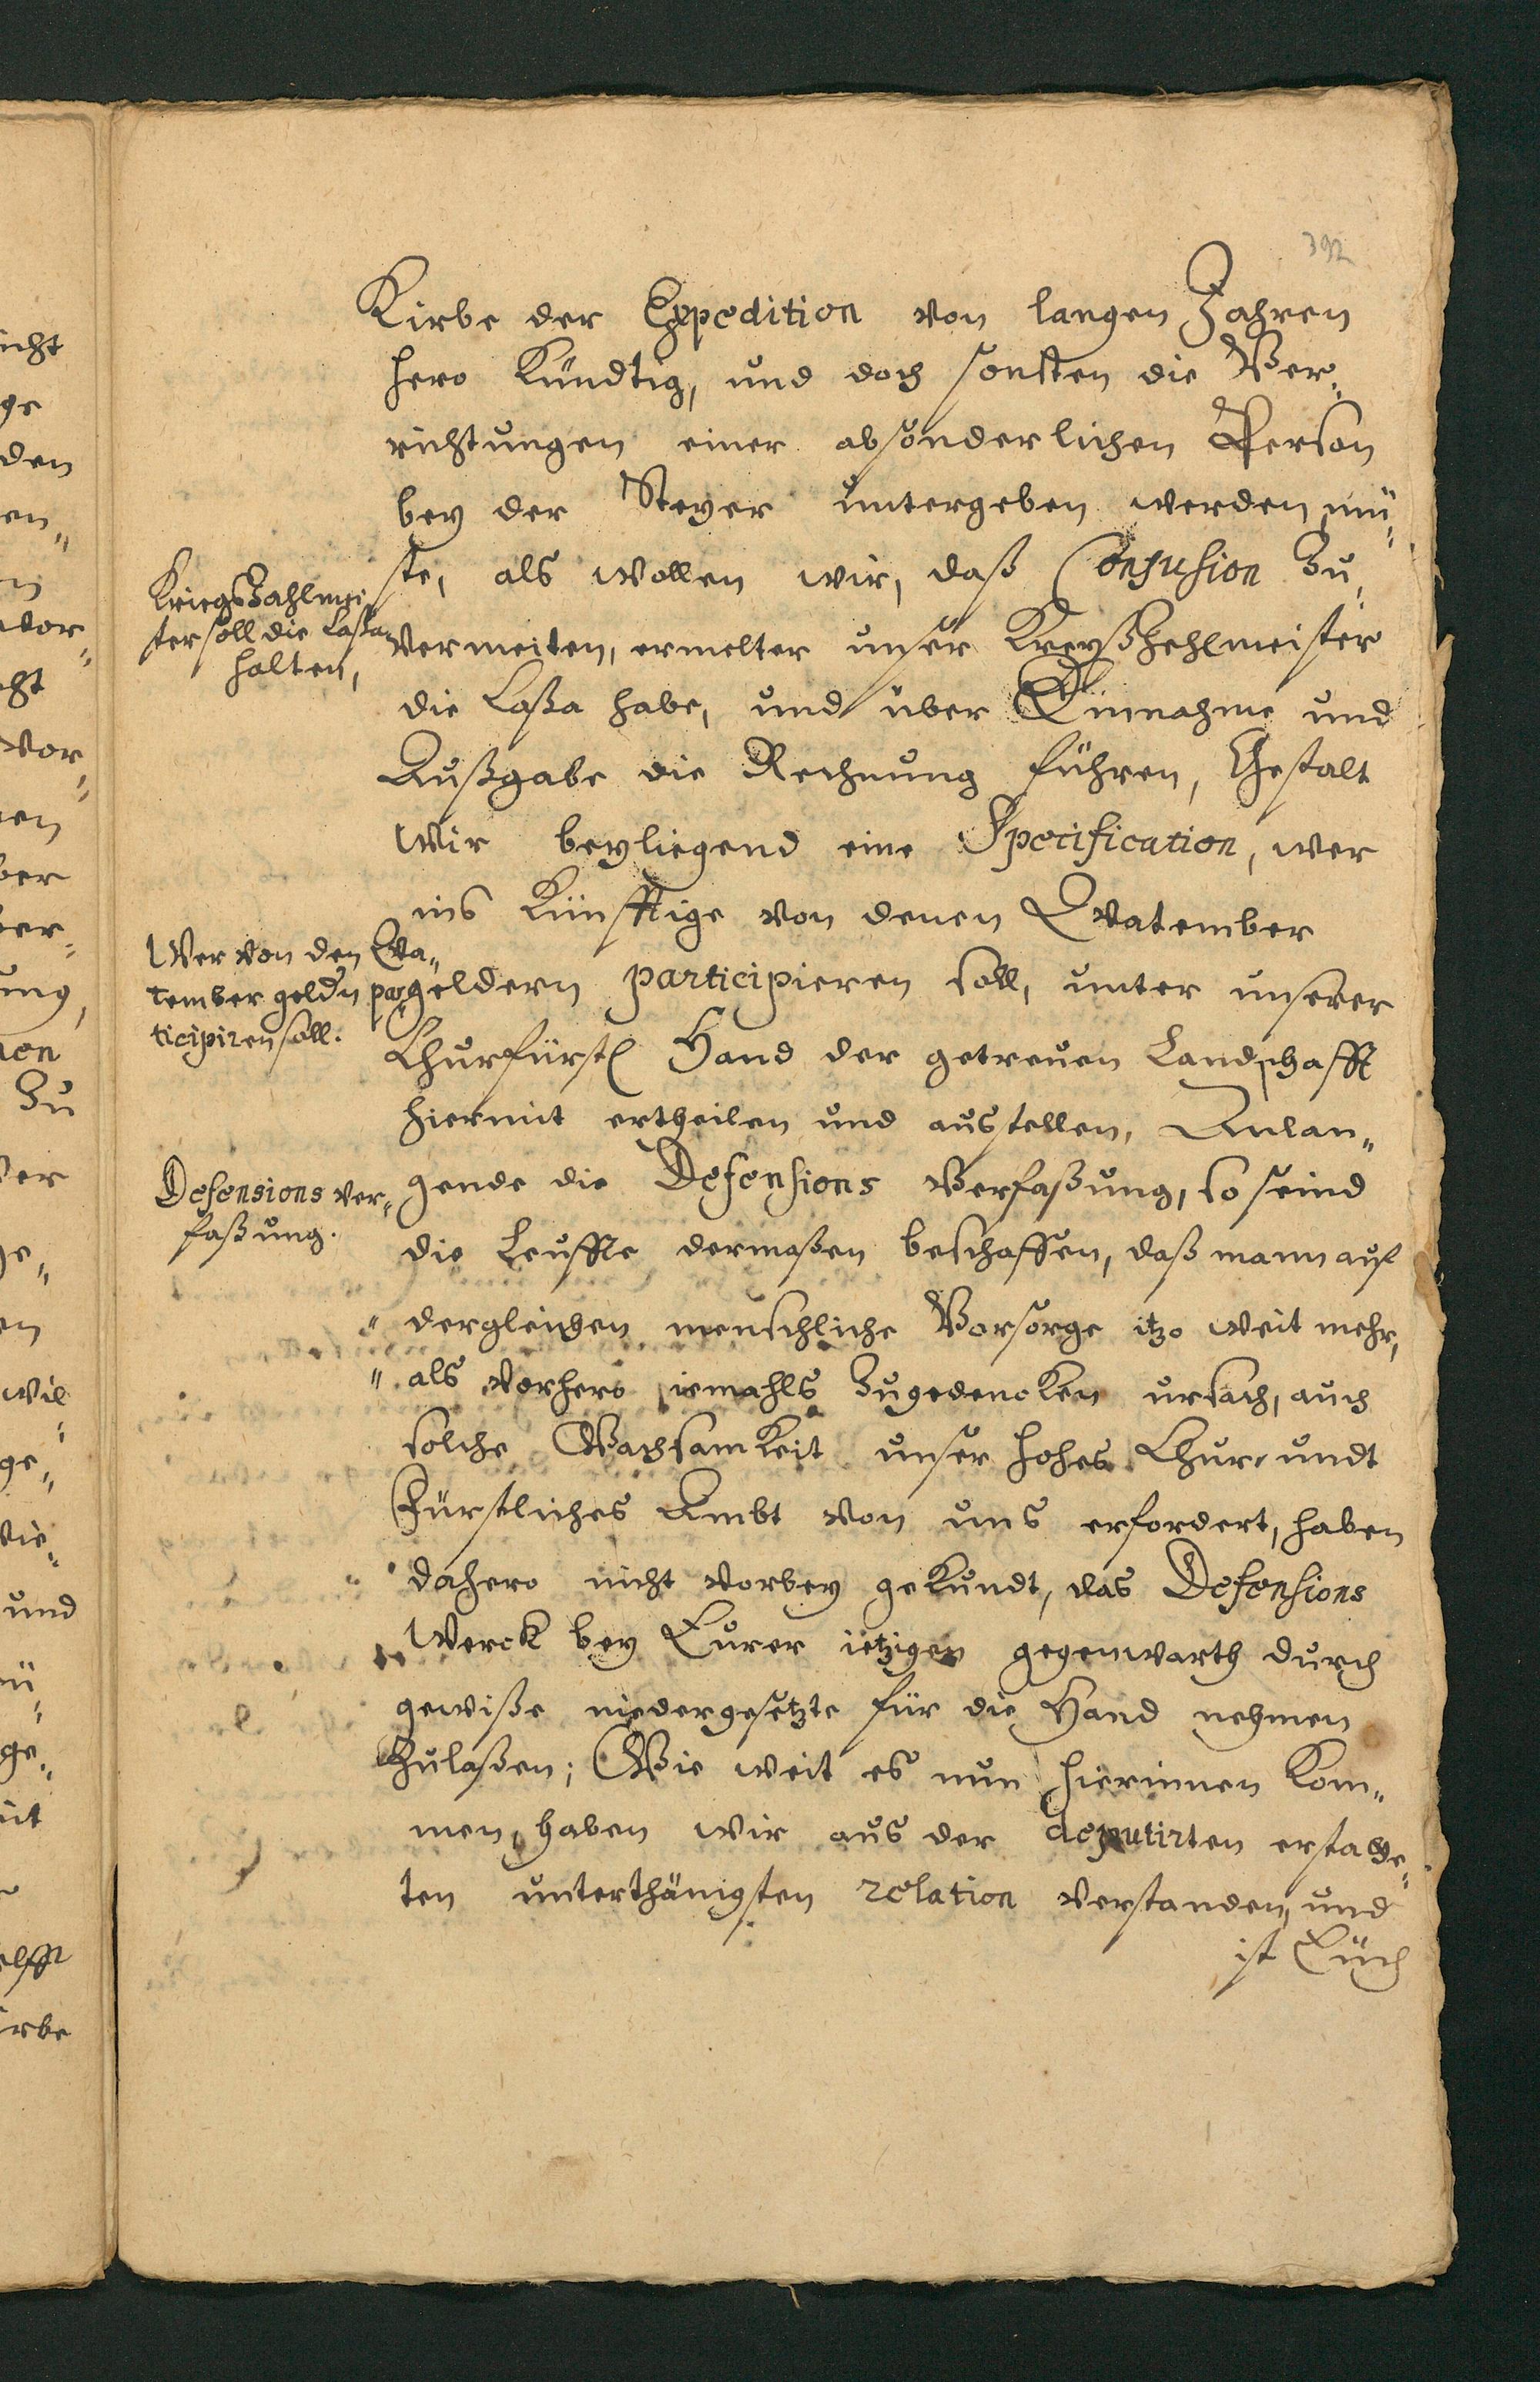 392
Kirbe der Expedition von langen Jahren
hero Kündtig, und doch sonsten die Ver-
richtungen einer absonderlichen Person
bey der Steyer untergeben werden mü-
ste, als wollen wir, daß Confusion Zu
vermeiten, ermelter unser Kreyßzehlmeister
die Caßa habe, und über Einnahme und
Außgabe die Rechnung führen, Gestalt
Wir beyliegend eine Specification, wer
ins Künfftige von denen Quatember
geldern participieren soll, unter unserer
Churfürstl Hand der getreuen Landschafft
hiermit ertheilen und ausstellen, Anlan-
gende die Defensions Verfaßung, so seind
die Leuffte dermaßen beschaffen, daß mann auf
dergleichen menschliche Vorsorge itzo weit mehr,
als vorhero iemahls Zugedencken ursach, auch
solche Wachsamkeit unser hohes Chur- undt
Fürstliches Ambt von uns erfordert, haben
dahero nicht vorbey gekundt, das Defensions
Werck bey Eurer ietzigen gegenwarth durch
gewiße niedergesetzte für die Hand nehmen
Zulaßen; Wie weit es nun hierinnen Kom-
men, haben wir aus der deputirten erstatte-
ten unterthänigsten relation verstanden, und
ist Euch
KriegsZahlmei
ster soll die Caßa
halten,
Wer von den Qua-
tember geldn par
ticipiren soll.
Defensions ver-
faßung.